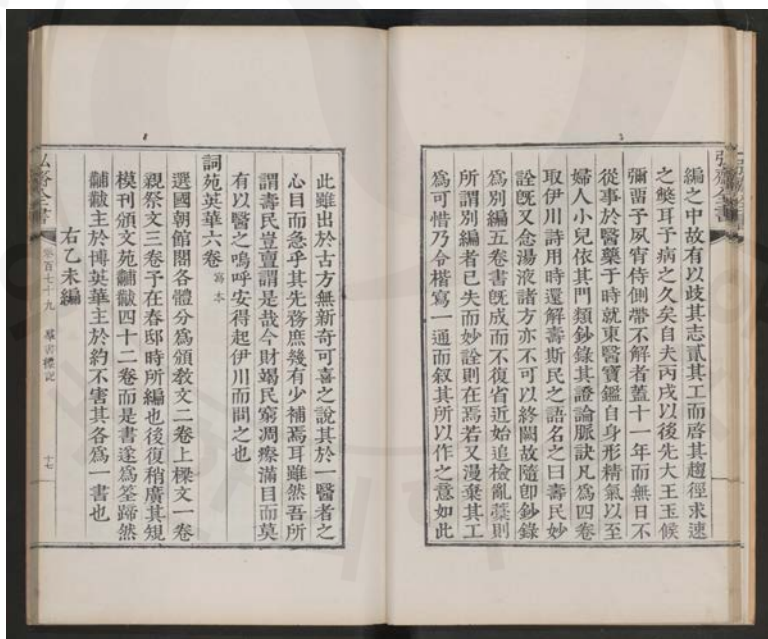 弘齋全書
編之中故有以歧其志貳其工而啓其趨徑求速
之獘耳予病之久矣自夫丙戌以後先大王玉候
彌畱予夙宵侍側帶不解者蓋十一年而無日不
從事於醫藥于時就東醫寶鑑自身形精氣以至
婦人小兒依其門類鈔錄其證論脈訣凡爲四卷
取伊川詩用時還解壽斯民之語名之曰壽民妙
詮旣又念湯液諸方亦不可以終闕故隨卽鈔錄
爲別編五卷書旣成而不復省近始追檢亂藁則
所謂別編者已失而妙詮則在焉若又漫棄其工
爲可惜乃令楷寫一通而叙其所以作之意如此
此雖出於古方無新奇可喜之說其於一醫者之
心目而急乎其先務庶幾有少補焉耳雖然吾所
謂壽民豈亶謂是哉今財竭民窮凋瘵滿目而莫
有以醫之嗚呼安得起伊川而問之也
詞苑英華六卷 寫本
選國朝館閣各體分爲頒敎文二卷上樑文一卷
親祭文三卷予在春邸時所編也後復稍廣其規
模刊頒文苑黼黻四十二卷而是書遂爲筌蹄然
黼黻主於博英華主於約不害其各爲一書也
右乙未編
弘齋全書 卷百七十九 羣書標記 十七